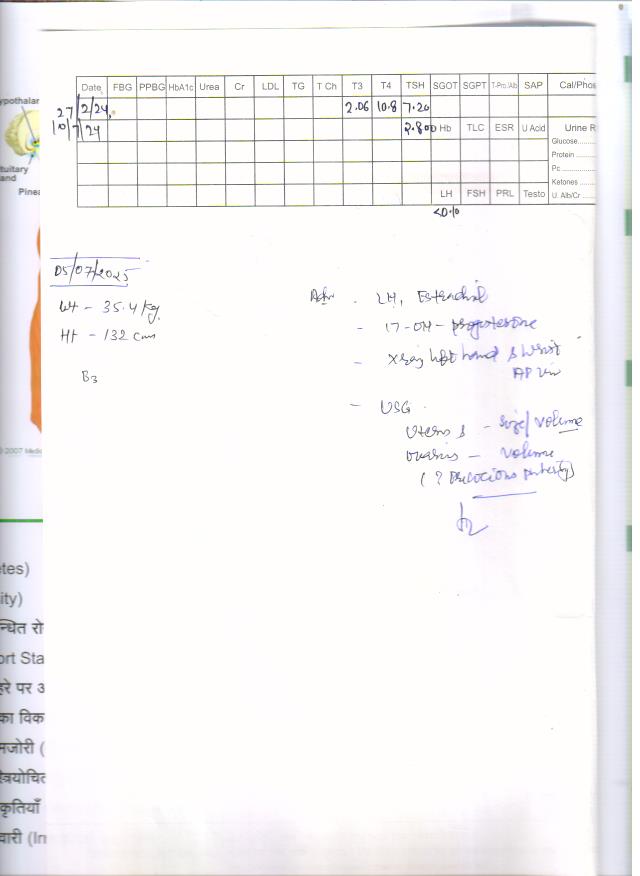 ypothalar
tuitary
and
Pinea
Date FBG PPBG HbA1c Urea Cr LDL TG T Ch T3 T4 TSH SGOT SGPT T-Pro/Alb SAP Cal/Phos
27/2/24 2.06 10.8 7.20
10/7/24 2.800 Hb TLC ESR U Acid Urine R
Glucose
Protein
Pc
Ketones
LH FSH PRL Testo U. Alb/Cr
<0.10
05/07/2025
Wt - 35.4 kg
Ht - 132 cm
B3
Adv - LH, Estradiol
- 17-OH-progesterone
- Xray left hand & wrist
AP view
- USG
Uterus & - size/volume
ovaries - volume
(? Precocious puberty)
© 2007 Medic
etes)
ity)
न्धित रो
ort Sta
हरे पर अ
का विक
मजोरी (
कृतियाँ
वारी (In